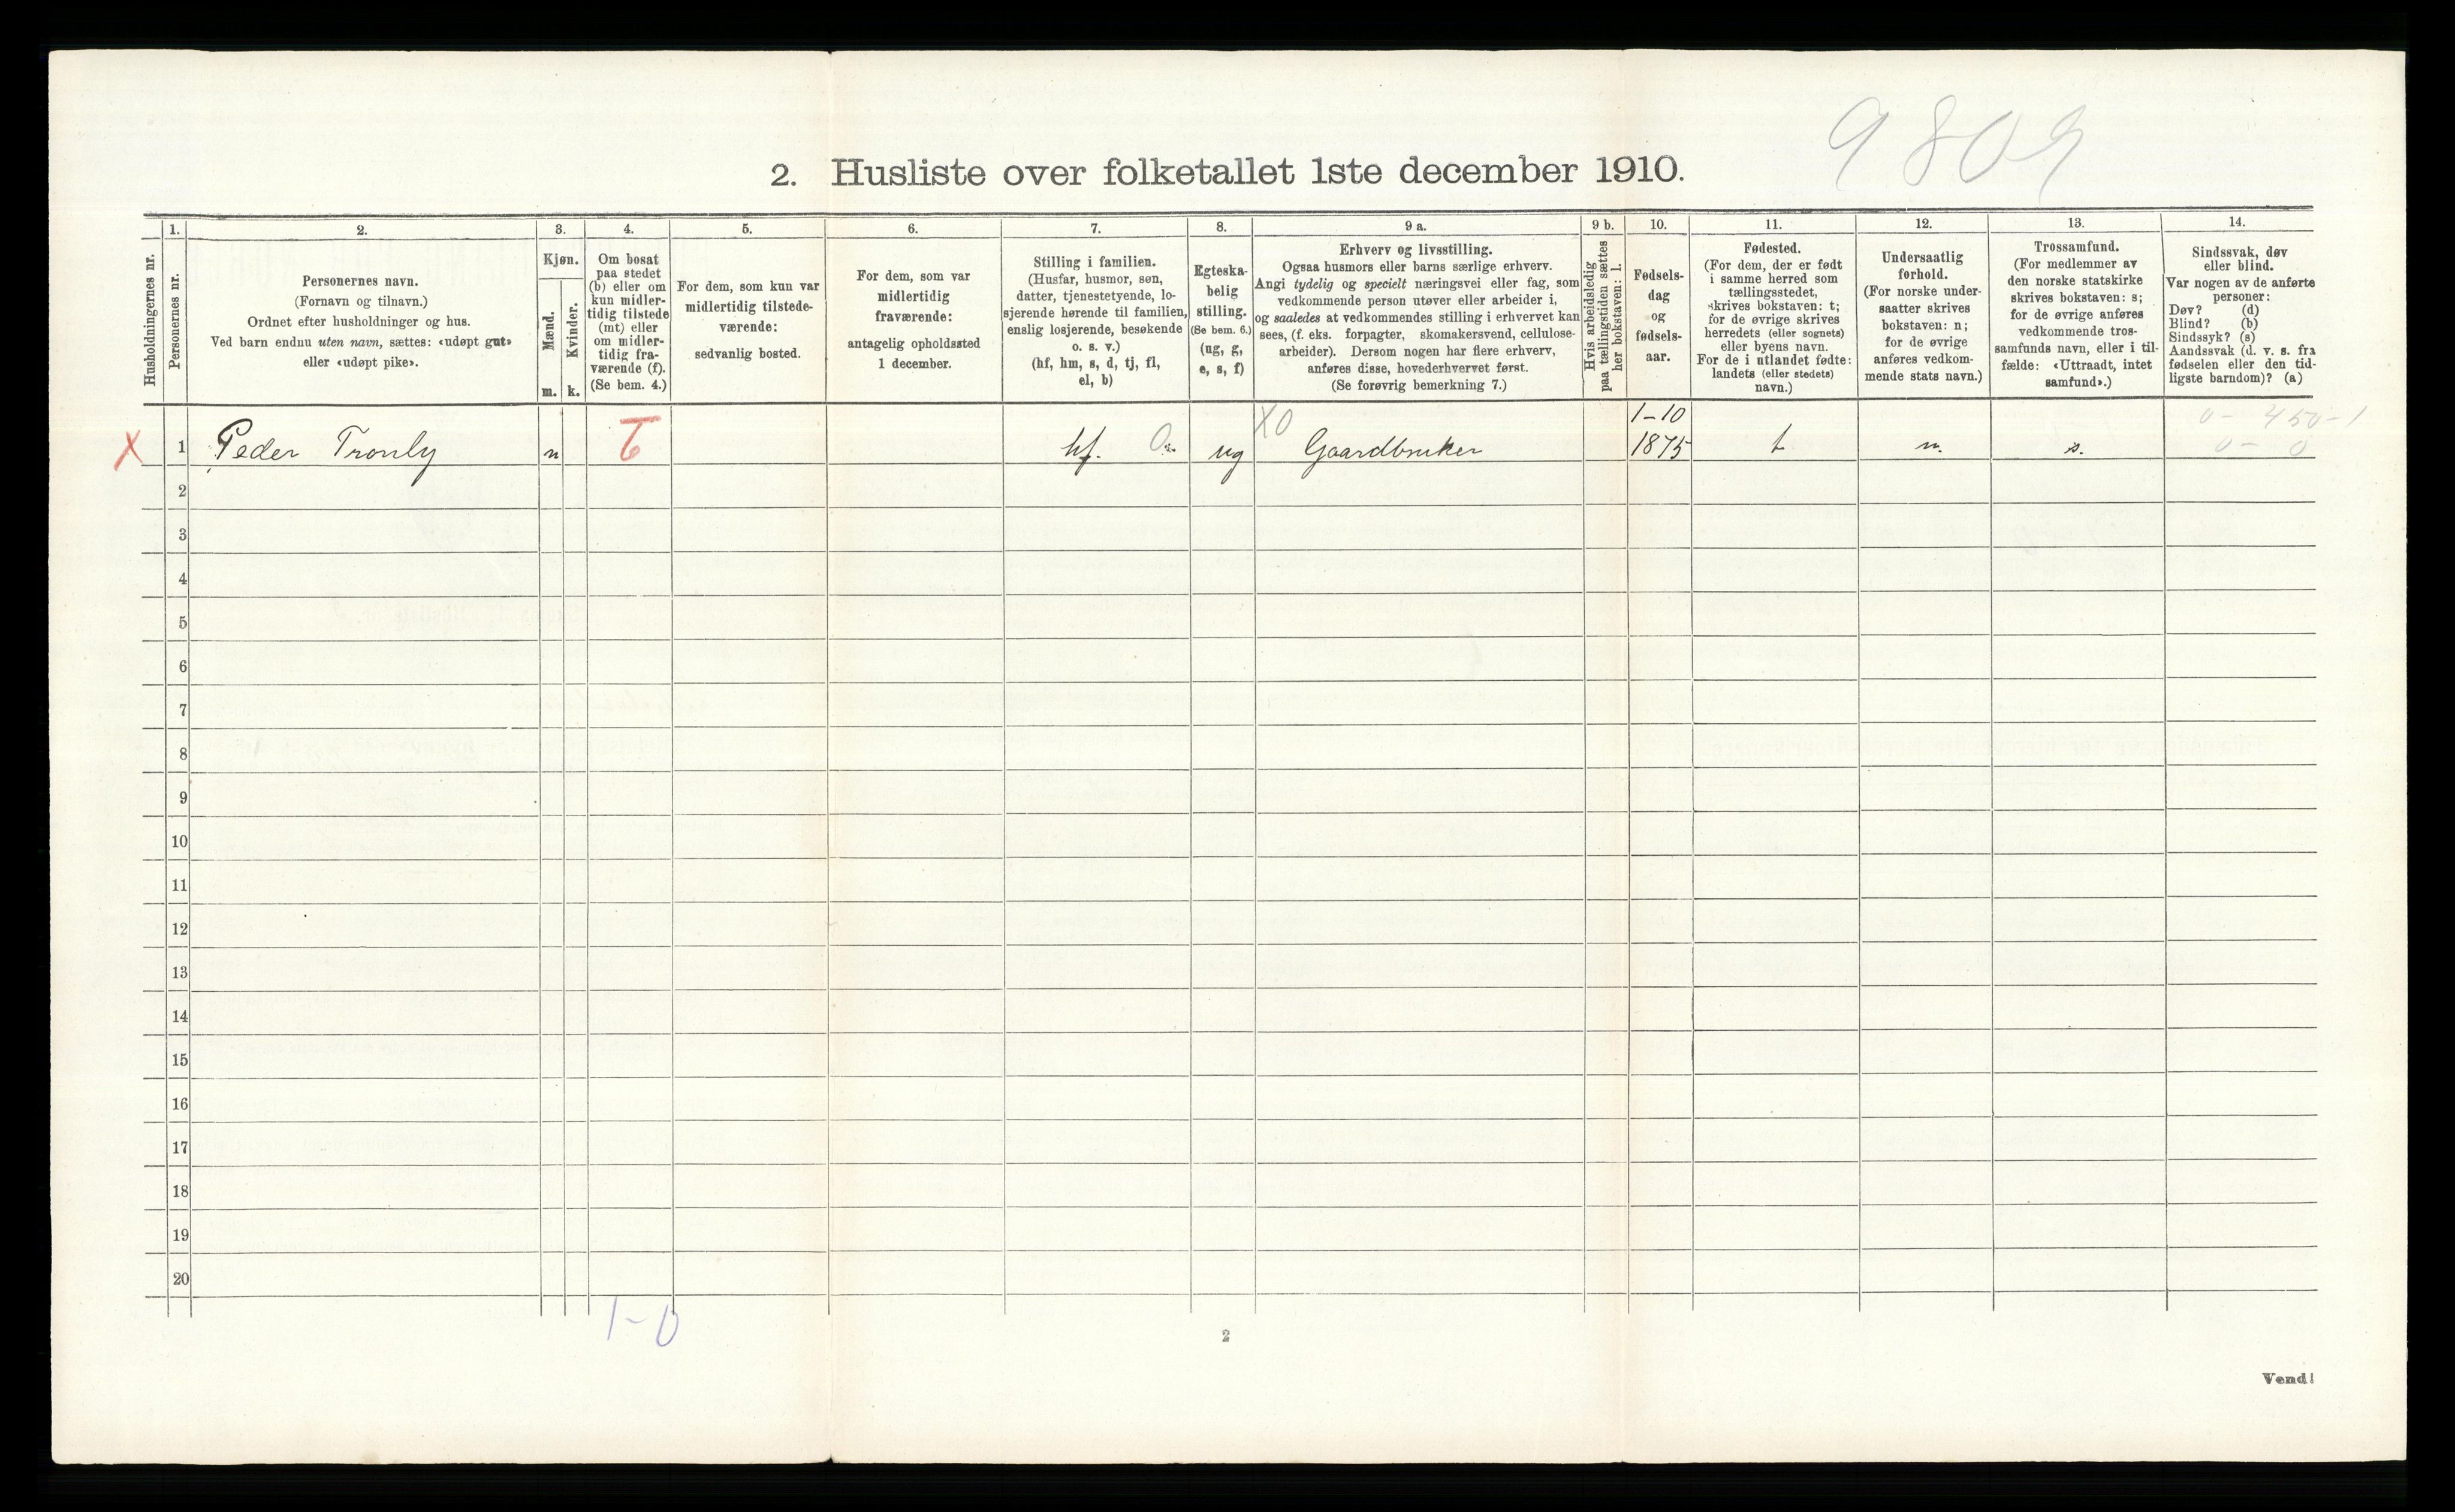 9809
2. Husliste over folketallet 1ste december 1910.
Husholdningernes nr.
1.
Personernes nr.
2.
Personernes navn.
(Fornavn og tilnavn.)
Ordnet efter husholdninger og hus.
Ved barn endnu uten navn, sættes: «udøpt gut»
eller «udøpt pike».
3.
Kjøn.
Mænd.
m.
Kvinder.
k.
4.
Om bosat
paa stedet
(b) eller om
kun midler-
tidig tilstede
(mt) eller
om midler-
tidig fra-
værende (f).
(Se bem. 4.)
5.
For dem, som kun var
midlertidig tilstede-
værende:
sedvanlig bosted.
6.
For dem, som var
midlertidig
fraværende:
antagelig opholdssted
1 december.
7.
Stilling i familien.
(Husfar, husmor, søn,
datter, tjenestetyende, lo-
sjerende hørende til familien,
enslig losjerende, besøkende
o. s. v.)
(hf, hm, s, d, tj, fl,
el, b)
8.
Egteska-
belig
stilling.
(Se bem. 6.)
(ug, g,
e, s, f)
9 a.
Erhverv og livsstilling.
Ogsaa husmors eller barns særlige erhverv.
Angi tydelig og specielt næringsvei eller fag, som
vedkommende person utøver eller arbeider i,
og saaledes at vedkommendes stilling i erhvervet kan
sees, (f. eks. forpagter, skomakersvend, cellulose-
arbeider). Dersom nogen har flere erhverv,
anføres disse, hovederhvervet først.
(Se forøvrig bemerkning 7.)
9 b.
Hvis arbeidsledig
paa tællingstiden sættes
her bokstaven: l.
10.
Fødsels-
dag
og
fødsels-
aar.
11.
Fødested.
(For dem, der er født
i samme herred som
tællingsstedet,
skrives bokstaven: t;
for de øvrige skrives
herredets (eller sognets)
eller byens navn.
For de i utlandet fødte:
landets (eller stedets)
navn.)
12.
Undersaatlig
forhold.
(For norske under-
saatter skrives
bokstaven: n;
for de øvrige
anføres vedkom-
mende stats navn.)
13.
Trossamfund.
(For medlemmer av
den norske statskirke
skrives bokstaven: s;
for de øvrige anføres
vedkommende tros-
samfunds navn, eller i til-
fælde: «Uttraadt, intet
samfund».)
14.
Sindssvak, døv
eller blind.
Var nogen av de anførte
personer:
Døv? (d)
Blind? (b)
Sindssyk? (s)
Aandssvak (d. v. s. fra
fødselen eller den tid-
ligste barndom)? (a)
1-10 0 - 450-1
X 1 Peder Tronly m b hf. 0 ug X0 Gaardbruker 1875 t n. s. 0 - 0
2
3
4
5
6
7
8
9
10
11
12
13
14
15
16
17
18
19
20
1-0
2
Vend!